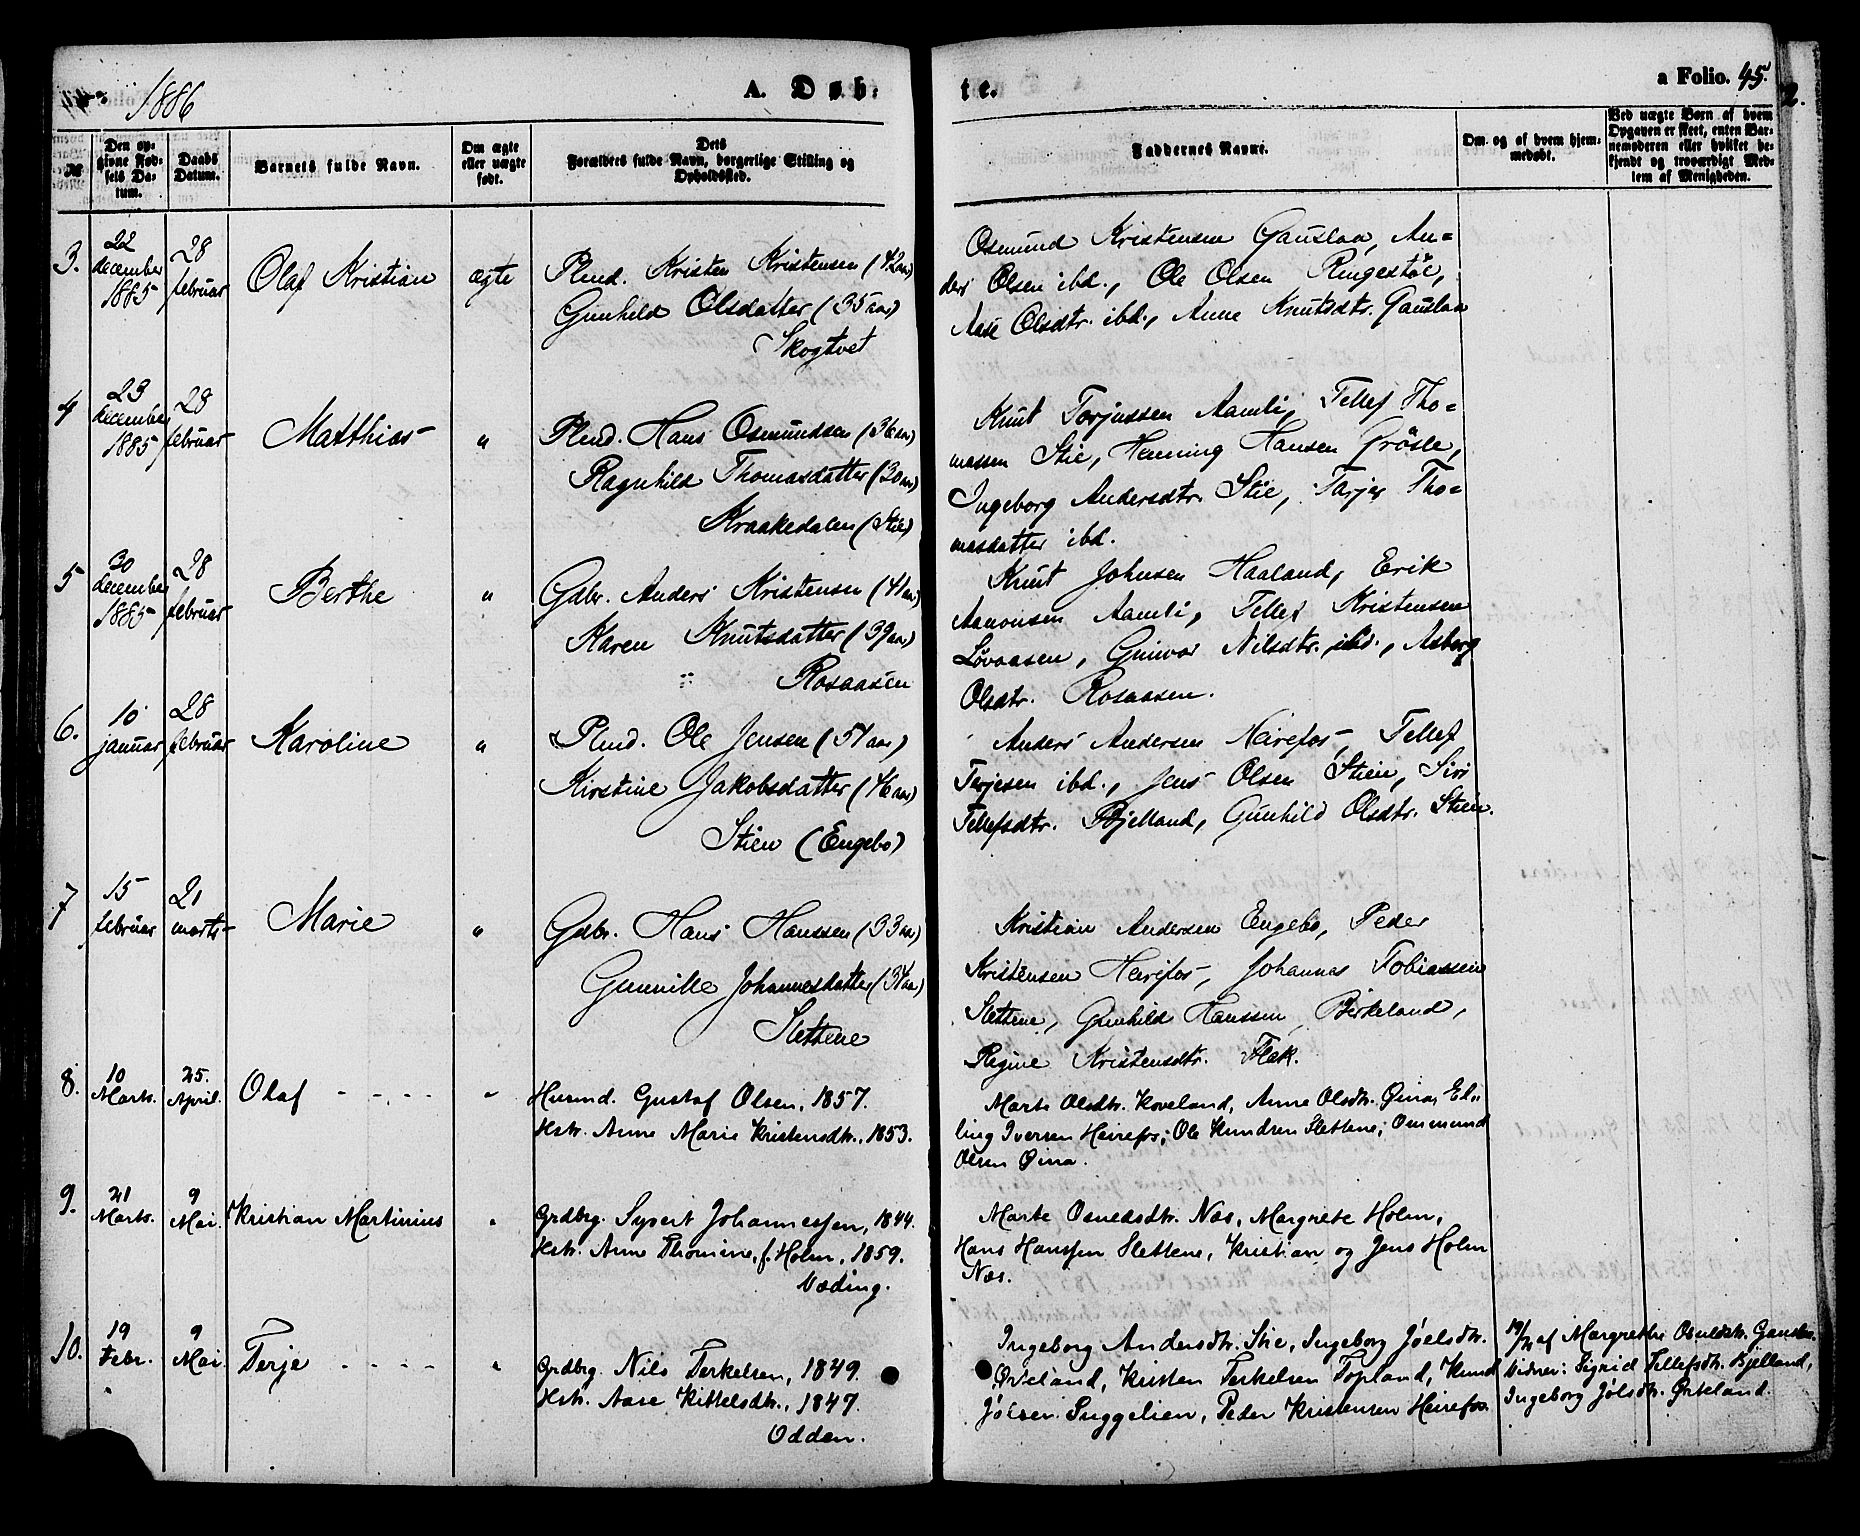 1886
A. Døb-
te.
a Folio. 45.
№
Den op-
givne Fød-
sels Da-
tum.
Daabs
Datum.
Barnets fulde Navn.
Om ægte
eller uægte
født.
Dets
Forældres fulde Navn, borgerlige Stilling og
Opholdssted.
Faddernes Navne.
Om og af hvem hjem-
medøbt.
Ved uægte Børn af hvem
Opgaven er skeet, enten Bar-
nemoderen eller hvilket be-
kjendt og troværdigt Med-
lem af Menigheden.
3.
22
december
1885
28
februar
Olaf Kristian
ægte
Plmd. Kristen Kristensen (42 aar)
Gunhild Olsdatter (35 aar)
Skogtvet
Osmund Kristensen Gauslaa, An-
ders Olsen ibd., Ole Olsen Ringestøl,
Aase Olsdtr. ibd., Anne Knutsdtr. Gauslaa
4
23
december
1885
28
februar
Matthias
"
Plmd. Hans Osmundsen (36 aar)
Ragnhild Thomasdatter (30 aar)
Kraakedalen (Stie)
Knut Torjussen Aamli, Tellef Tho-
massen Stie, Henning Hansen Grösle,
Ingeborg Andersdtr. Stie, Tarjer Tho-
masdatter ibd.
5
30
december
1885
28
februar
Berthe
"
Gdbr. Anders Kristensen (41 aar)
Karen Knutsdatter (39 aar)
Rosaasen
Knut Johnsen Haaland, Erik
Aanonsen Aamli, Tellef Kristensen
Løvaasen, Gunvor Nilsdtr. ibd., Asborg
Olsdtr. Rosaasen.
6.
10
januar
28
februar
Karoline
"
Plmd. Ole Jensen (51 aar)
Kirstine Jakobsdatter (46 aar)
Stien (Engebo)
Anders Andersen Heirefos, Tellef
Terjesen ibd., Jens Olsen Stien, Siri
Tellefsdtr. Bjelland, Gunhild Olsdtr. Stien.
7
15
februar
21
marts
Marie
"
Gdbr. Hans Hanssen (33 aar)
Gunville Johannesdatter (31 aar)
Slettene
Kristian Andersen Engebo, Peder
Kristensen Heirefos, Johannes Tobiassen
Slettene, Gunhild Hanssen Birkeland,
Regine Kristensdtr. Flak.
8.
10
Marts.
25.
April.
Olaf
"
Husmd. Gustaf Olsen, 1857.
Hstr. Anne Marie Kristensdtr., 1853.
Marte Olsdtr. Koveland, Anne Olsdtr. Øina, El-
ling Iversen Heirefos; Ole Knudsen Slettene; Ommund
Olsen Øina.
9.
21
Marts.
9
Mai.
Kristian Martinius
"
Grdbrg. Syvert Johannessen, 1844.
Hstr. Anne Thomine, f. Holm, 1859.
Væding.
Marte Osuldsdtr. Næs, Margrete Holm,
Hans Hanssen Slettene, Kristian og Jens Holm
Næs.
10.
19
Febr.
9
Mai.
Terje
"
Grdbrg. Nils Terkelsen, 1849.
Hstr. Aase Kittelsdtr., 1847.
Odden.
Ingeborg Andersdtr. Stie, Ingeborg Jøelsdtr.
Øveland, Kristen Terkelsen Topland, Knud
Jølsen Suggelien, Peder Kristensen Heirefos.
19/2 af Margrethe Osuldsdtr. Gauslaa.
Vidner: Sigrid Tellefsdtr. Bjelland,
Ingeborg Jølsdtr.